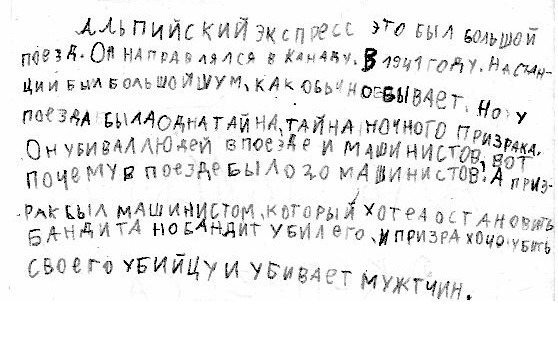 АЛЬПИЙСКИЙ ЭКСПРЕСС ЭТО БЫЛ БОЛЬШОЙ
ПОЕЗД. ОН НАПРАВЛЯЛСЯ В КАНАДУ. В 1941 ГОДУ. НА СТАН-
ЦИИ БЫЛ БОЛЬШОЙ ШУМ, КАК ОБЫЧНО БЫВАЕТ. НО У
ПОЕЗДА БЫЛА ОДНА ТАЙНА, ТАЙНА НОЧНОГО ПРИЗРАКА.
ОН УБИВАЛ ЛЮДЕЙ В ПОЕЗДЕ И МАШИНИСТОВ, ВОТ
ПОЧЕМУ В ПОЕЗДЕ БЫЛО 20 МАШИНИСТОВ. А ПРИЗ-
РАК БЫЛ МАШИНИСТОМ, КОТОРЫЙ ХОТЕЛ ОСТАНОВИТЬ
БАНДИТА НО БАНДИТ УБИЛ ЕГО, И ПРИЗРА УБИТЬ
СВОЕГО УБИЙЦУ И УБИВАЕТ МУЖТЧИН.